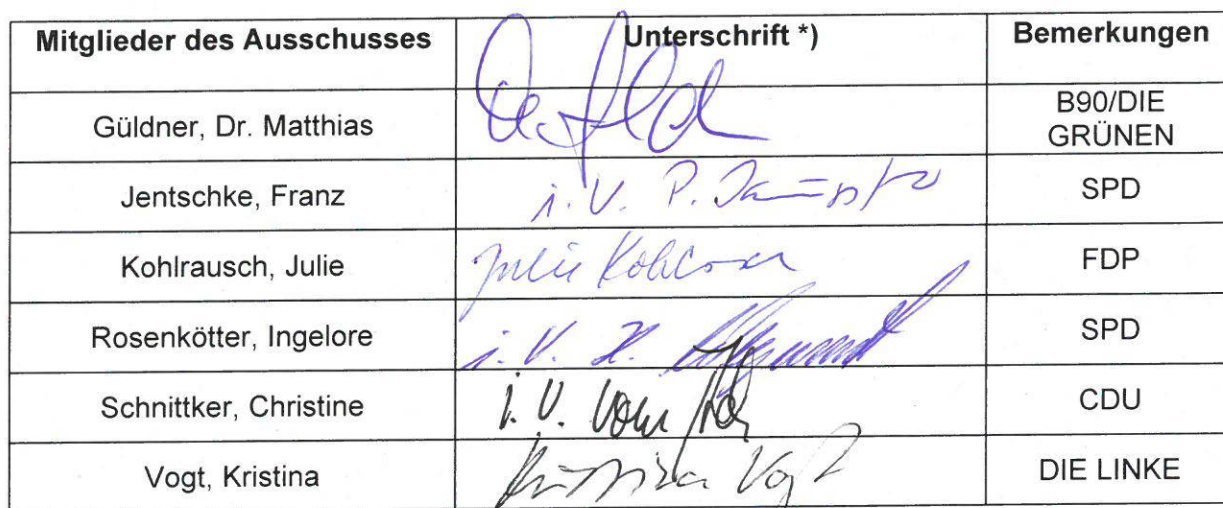 Mitglieder des Ausschusses Unterschrift *) Bemerkungen
Güldner, Dr. Matthias B90/DIE
GRÜNEN
Jentschke, Franz i.V. P. SPD
Kohlrausch, Julie Julie Kohlrausch FDP
Rosenkötter, Ingelore i.V. SPD
Schnittker, Christine i.V. CDU
Vogt, Kristina Kristina Vogt DIE LINKE